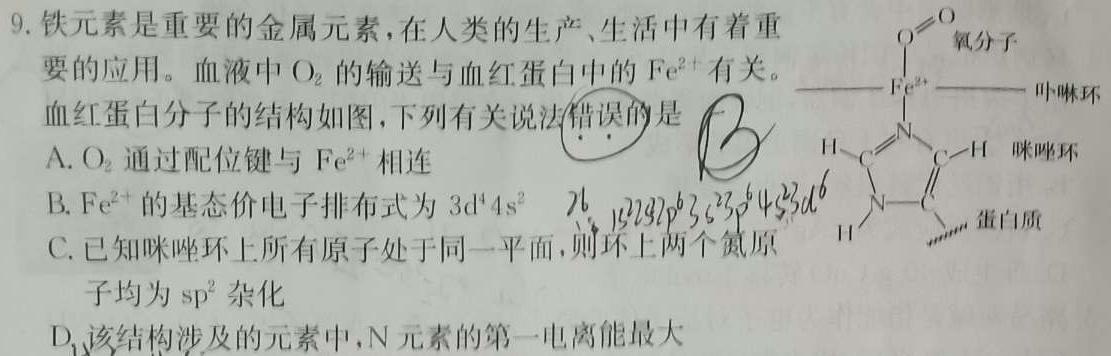 9. 铁元素是重要的金属元素,在人类的生产、生活中有着重
要的应用。血液中 O₂ 的输送与血红蛋白中的 Fe²⁺ 有关。
血红蛋白分子的结构如图,下列有关说法错误的是
B
A. O₂ 通过配位键与 Fe²⁺ 相连
B. Fe²⁺ 的基态价电子排布式为 3d⁴4s²
26
C. 已知咪唑环上所有原子处于同一平面,则环上两个氮原
子均为 sp² 杂化
D. 该结构涉及的元素中,N 元素的第一电离能最大
O
O 氧分子
Fe²⁺ 卟啉环
N
H C C H 咪唑环
N C
H 蛋白质